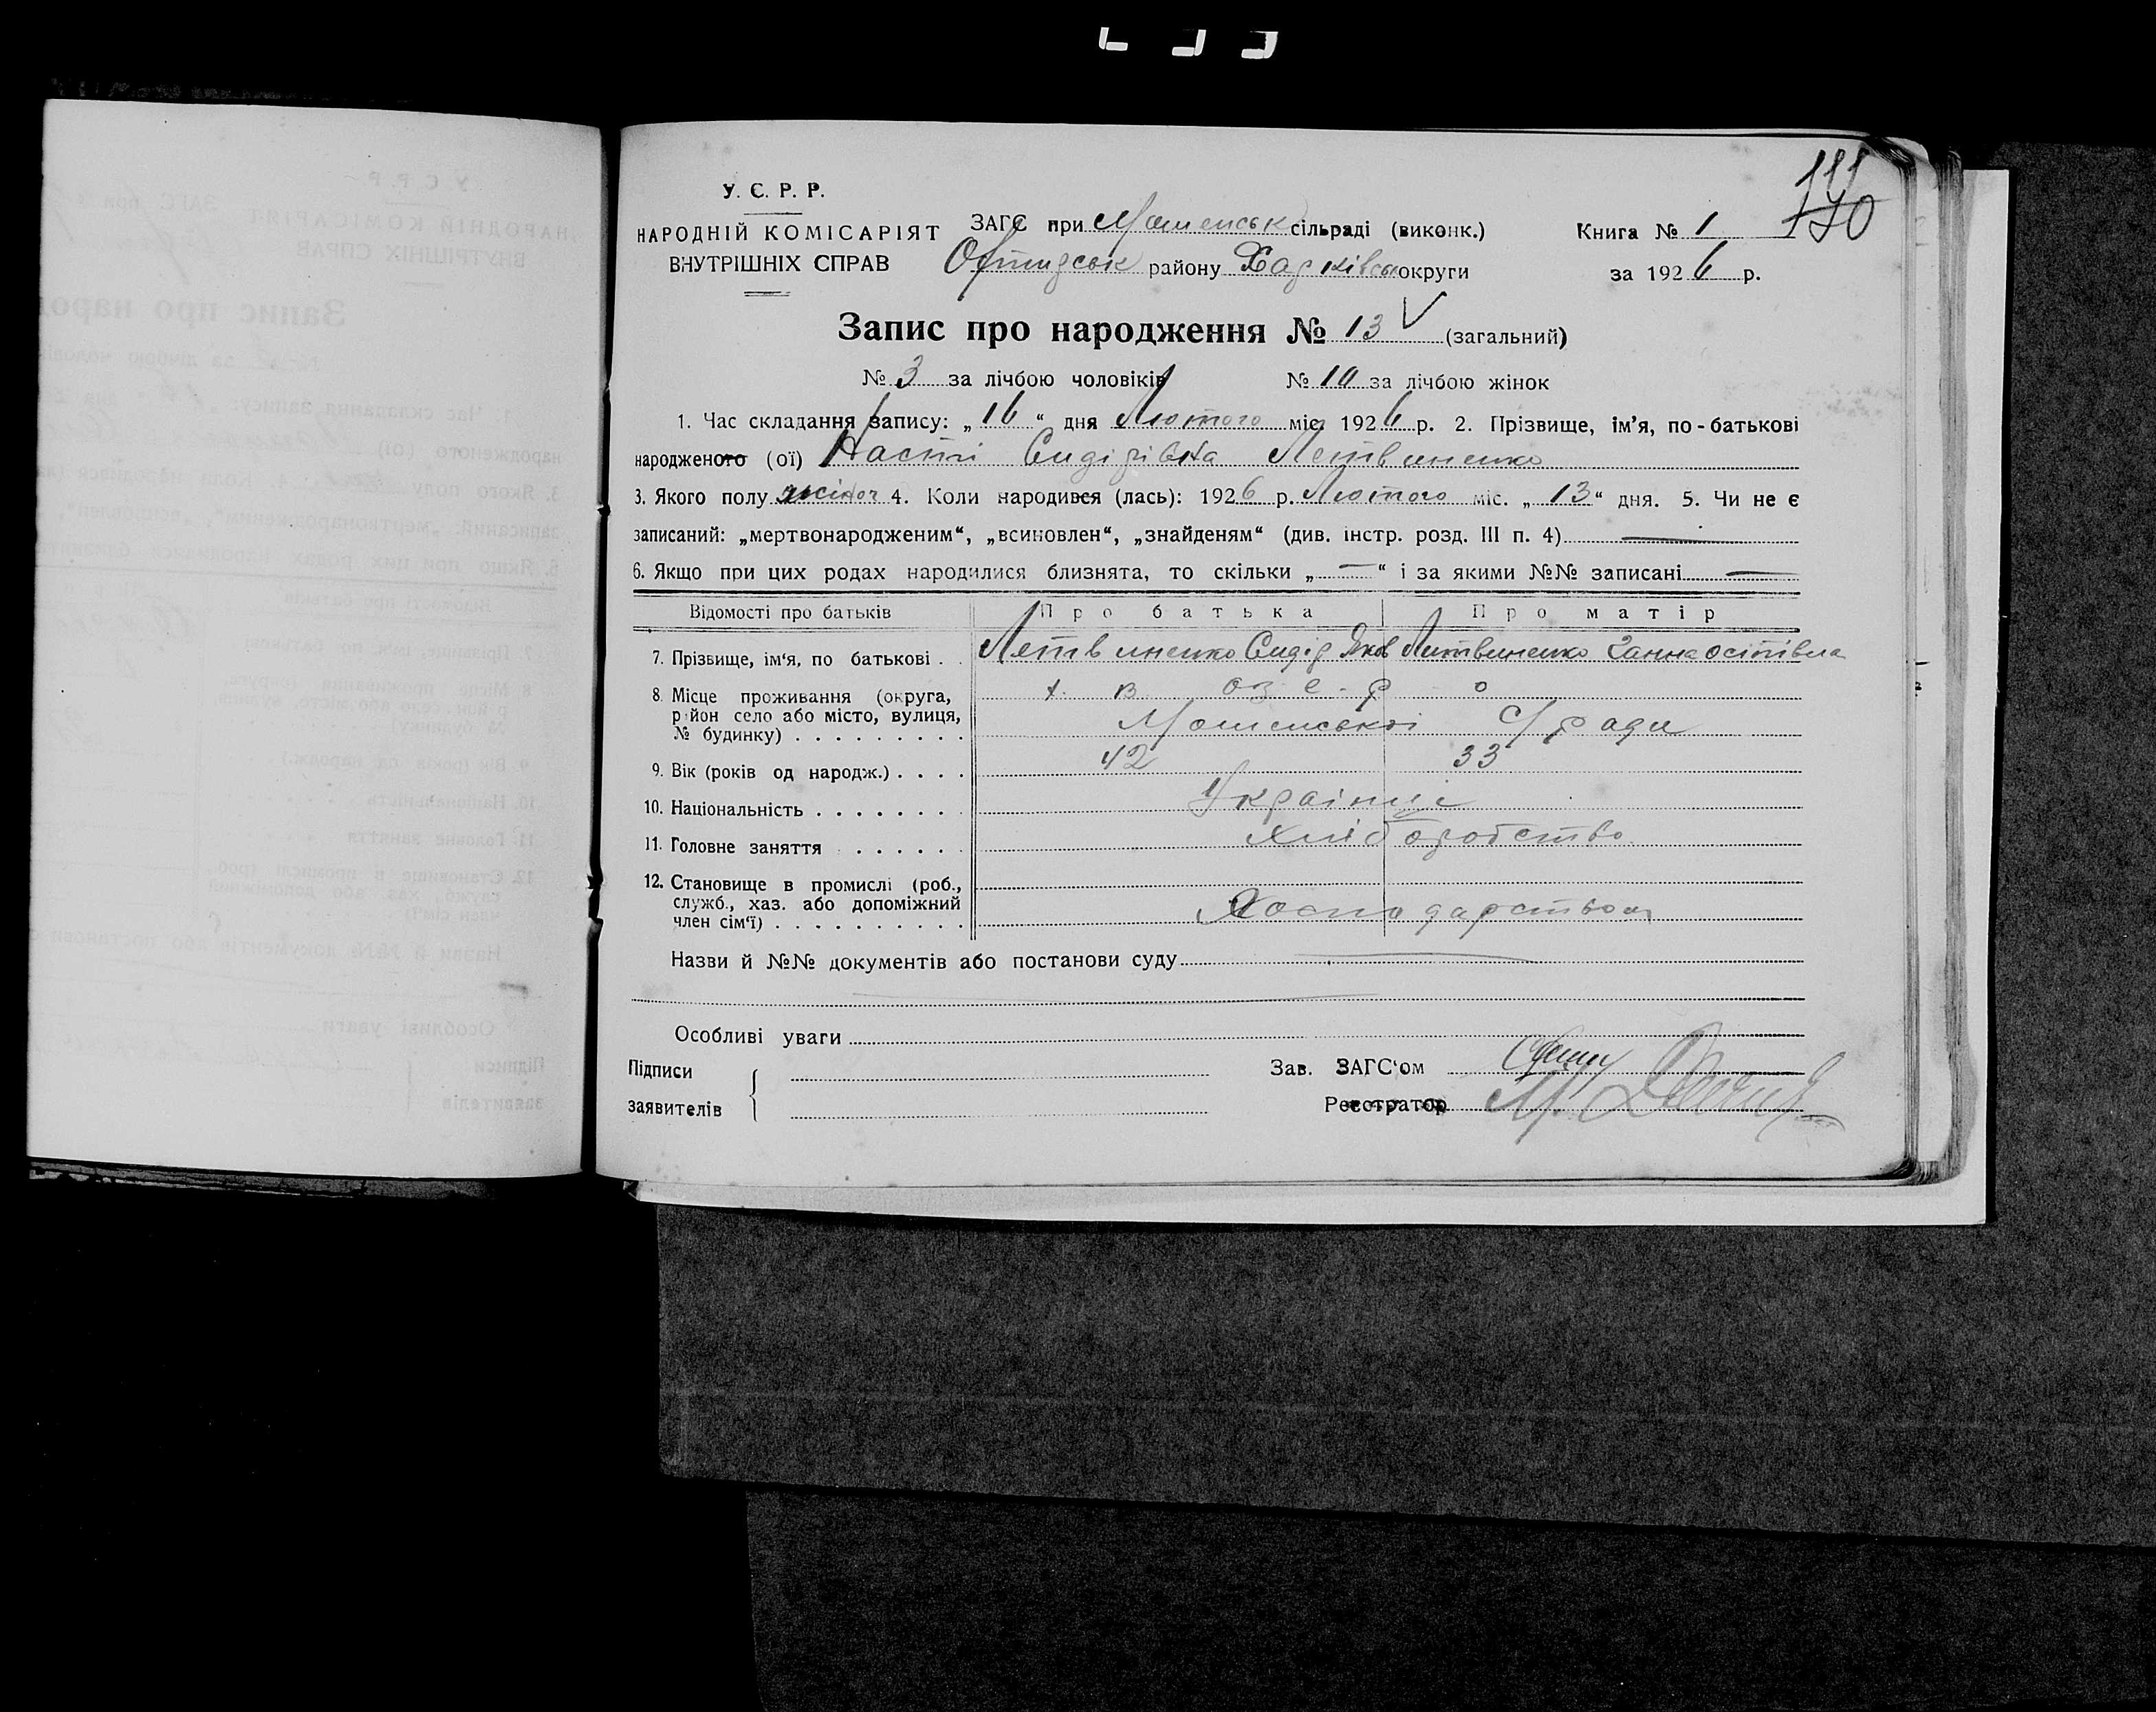 111
170
У. С. Р. Р.
НАРОДНІЙ КОМІСАРІЯТ
ВНУТРІШНІХ СПРАВ
ЗАГС при Мошенськ сільраді (виконк.)
району Харківськ округи
Книга № 1
за 1926 р.
Запис про народження № 13 (загальний)
№ 3 за лічбою чоловіків № 10 за лічбою жінок
1. Час складання запису: „16“ дня Лютого міс. 1926 р. 2. Прізвище, ім'я, по-батькові
народженого (ої) Насті Сидірівна Летвиненко
3. Якого полу жіноч 4. Коли народився (лась): 1926 р. Лютого міс. „13“ дня. 5. Чи не є
записаний: „мертвонародженим“, „всиновлен“, „знайденям“ (див. інстр. розд. III п. 4) —
6. Якщо при цих родах народилися близнята, то скільки „—“ і за якими №№ записані —
Відомості про батьків Про батька Про матір
7. Прізвище, ім'я, по батькові . . Летвиненко Сидір Яков Литвиненко Ганна Осипівна
8. Місце проживання (округа, х. Озеро
район село або місто, вулиця,
№ будинку) . . . . . . . . . Мошенської С/ради
9. Вік (років од народж.) . . . . 42 33
10. Національність . . . . . . . Українці
11. Головне заняття . . . . . . Хліборобство
12. Становище в промислі (роб.,
служб., хаз. або допоміжний
член сім'ї) . . . . . . . . . . Господарством
Назви й №№ документів або постанови суду
Особливі уваги
Підписи
заявителів
Зав. ЗАГС'ом
Реєстратор